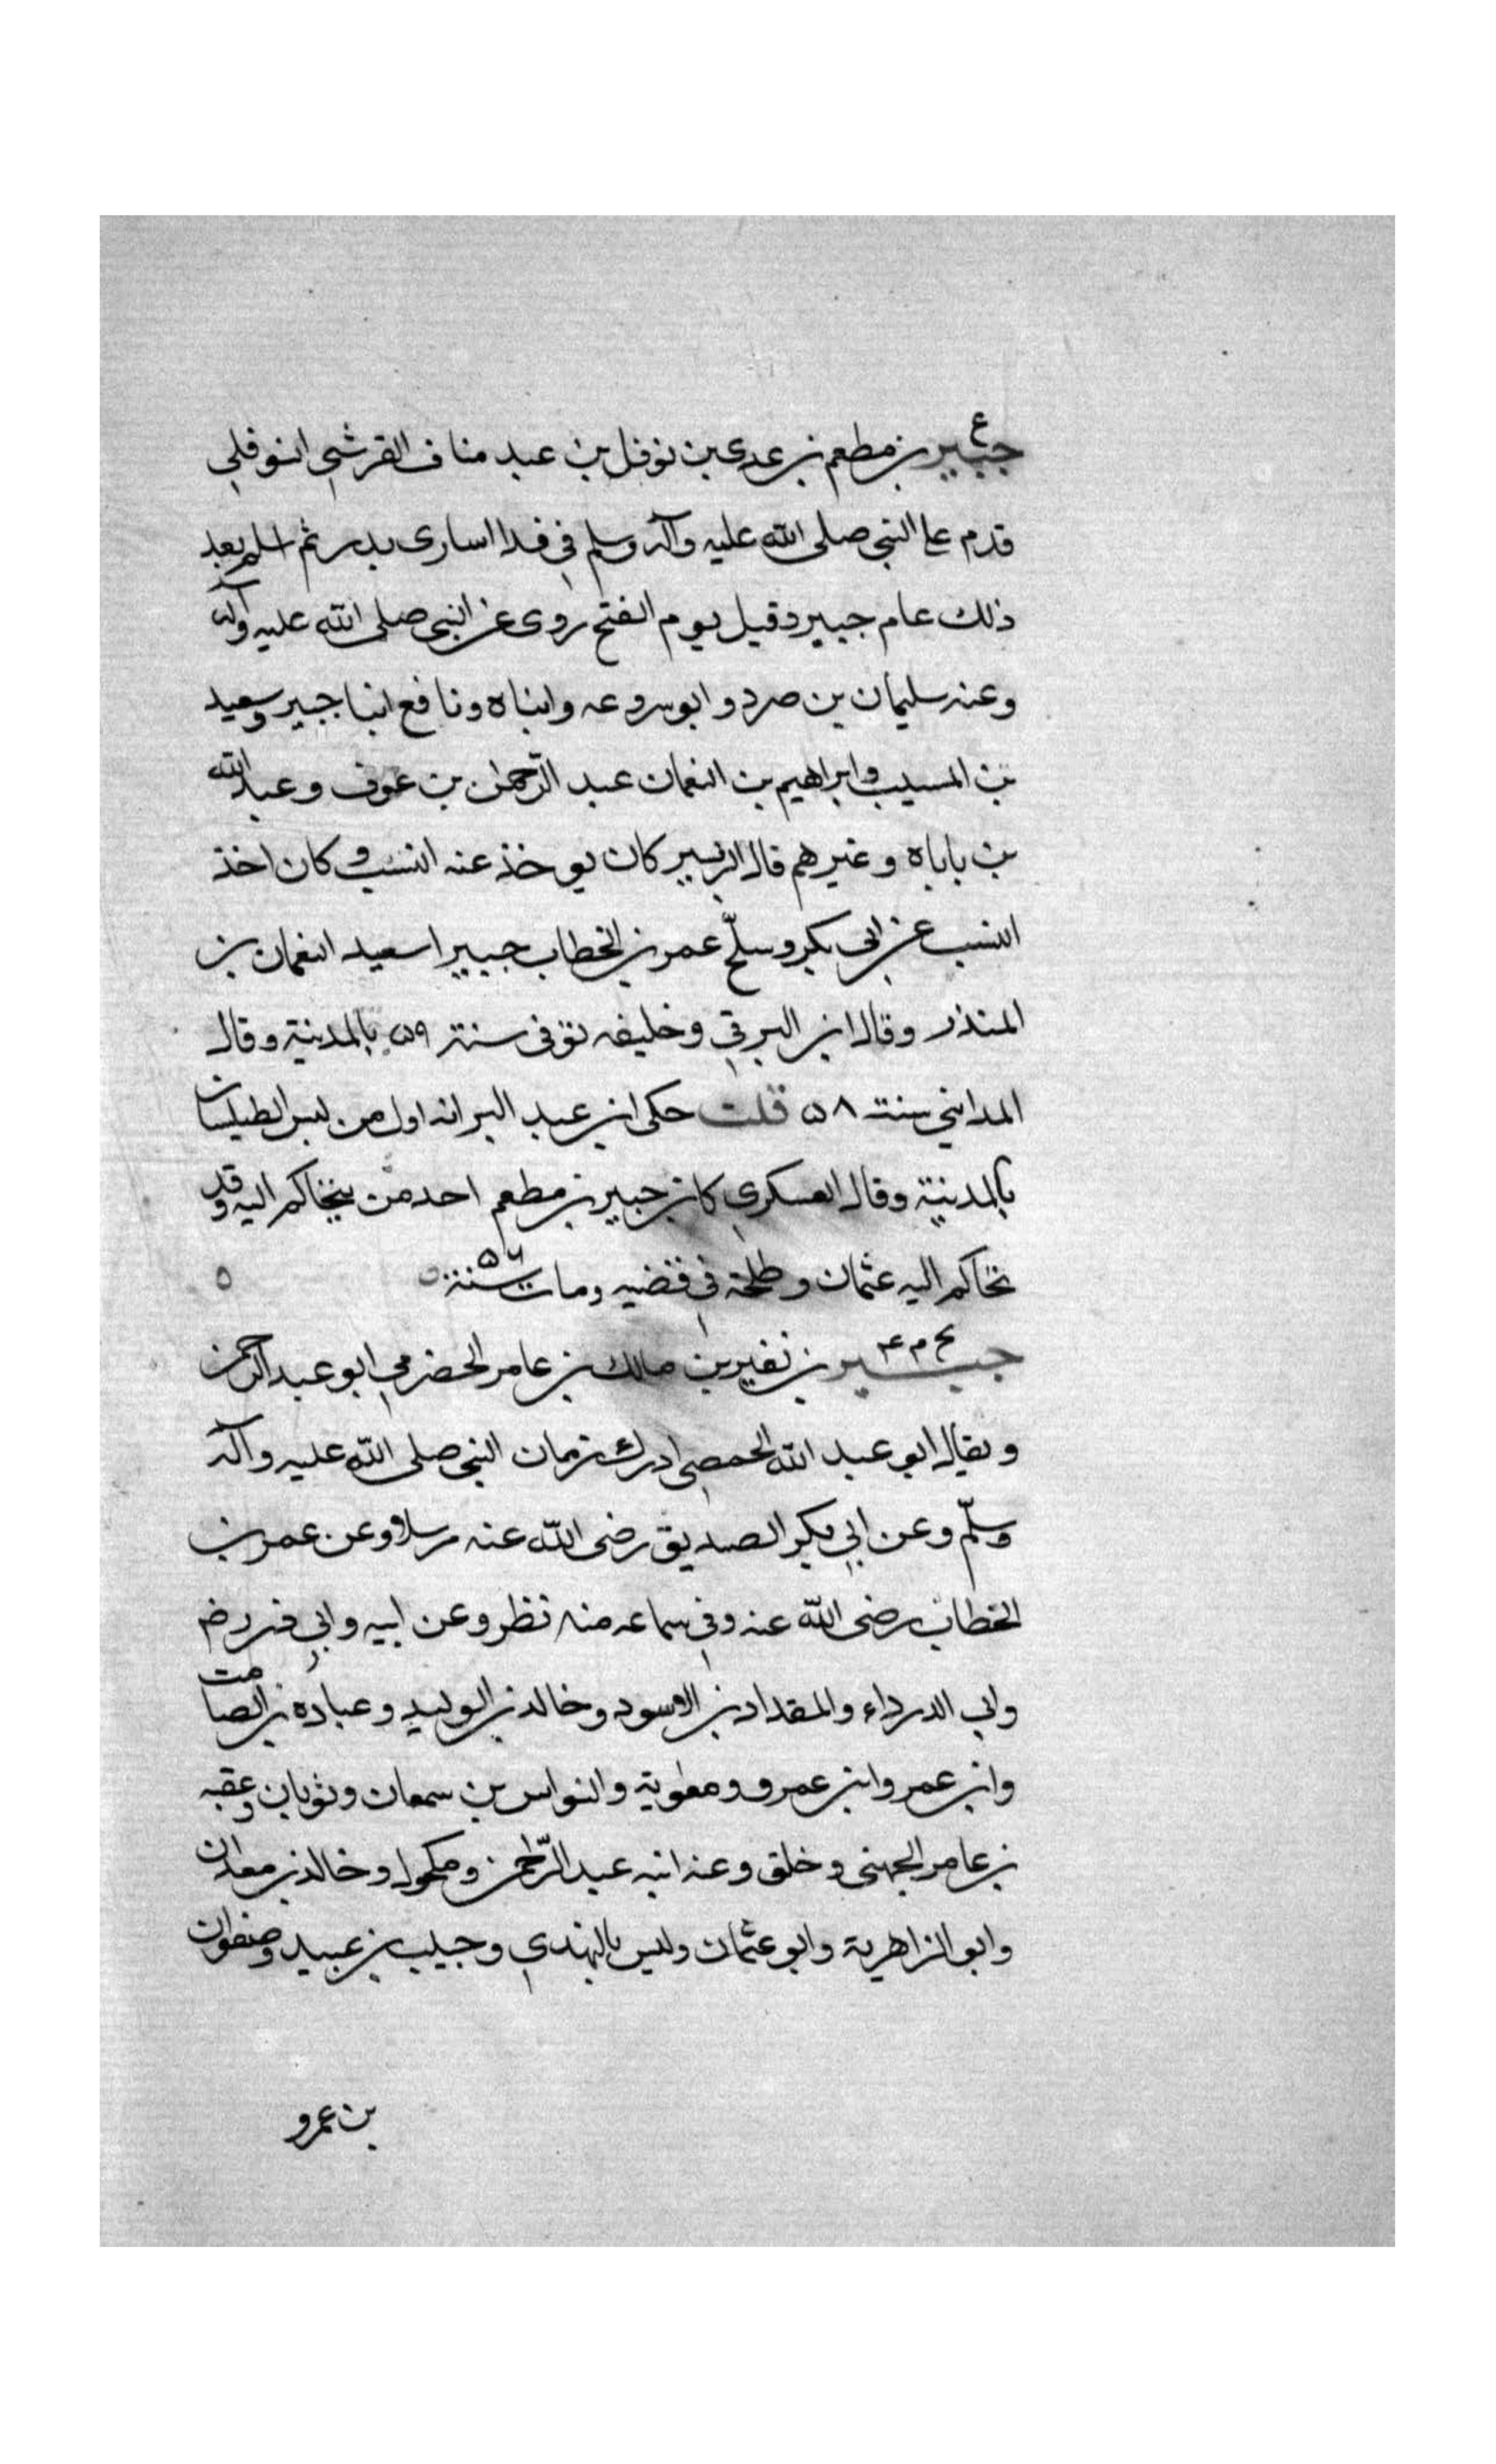 ع
جبير بن مطعم بن عدي بن نوفل بن عبد مناف القرشي النوفلي
قدم على النبي صلى الله عليه وآله وسلم في فدا اسارى بدر ثم اسلم بعد
ذلك عام جبير وقيل يوم الفتح روى عن النبي صلى الله عليه وآله
وعنه سليمان بن صرد وابو سروعه وابناه ونافع ابنا جبير وسعيد
بن المسيب وابراهيم بن النعمان عبد الرحمن بن عوف وعبد الله
بن باباه وغيرهم قال الزبير كان يوخذ عنه النسب وكان اخذ
النسب عن ابي بكر وسلح عمر بن الخطاب جبيرا سعيد النعمان بن
المنذر وقال ابن البرقي وخليفه توفى سنة ٥٩ بالمدينة وقال
المدايني سنة ٥٨ قلت حكى ابن عبد البر انه اول من لبس الطيلسان
بالمدينة وقال العسكري كان جبير بن مطعم احد من يتحاكم اليه وقد
تحاكم اليه عثمان وطلحة في قضيه ومات سنة ٥٦ ٥
بخ م ٤
جبير بن نفير بن مالك بن عامر الحضرمي ابو عبد الرحمن
ويقال ابو عبد الله الحمصي ادرك زمان النبي صلى الله عليه وآله
وسلّم وعن ابي بكر الصديق رضى الله عنه مرسلا وعن عمر بن
الخطاب رضى الله عنه وفي سماعه منه نظر وعن ابيه وابي ذر رض
وابي الدرداء والمقداد بن الاسود وخالد بن الوليد وعباده بن الصامت
وابن عمر وابن عمرو ومعوية والنواس بن سمعان وثوبان وعقبه
بن عامر الجهني وخلق وعنه ابنه عبد الرّحمن ومكحول وخالد بن معدان
وابو الزاهرية وابو عثمان وليس بالنهدي وحبيب بن عبيد وصفوان
بن عمرو